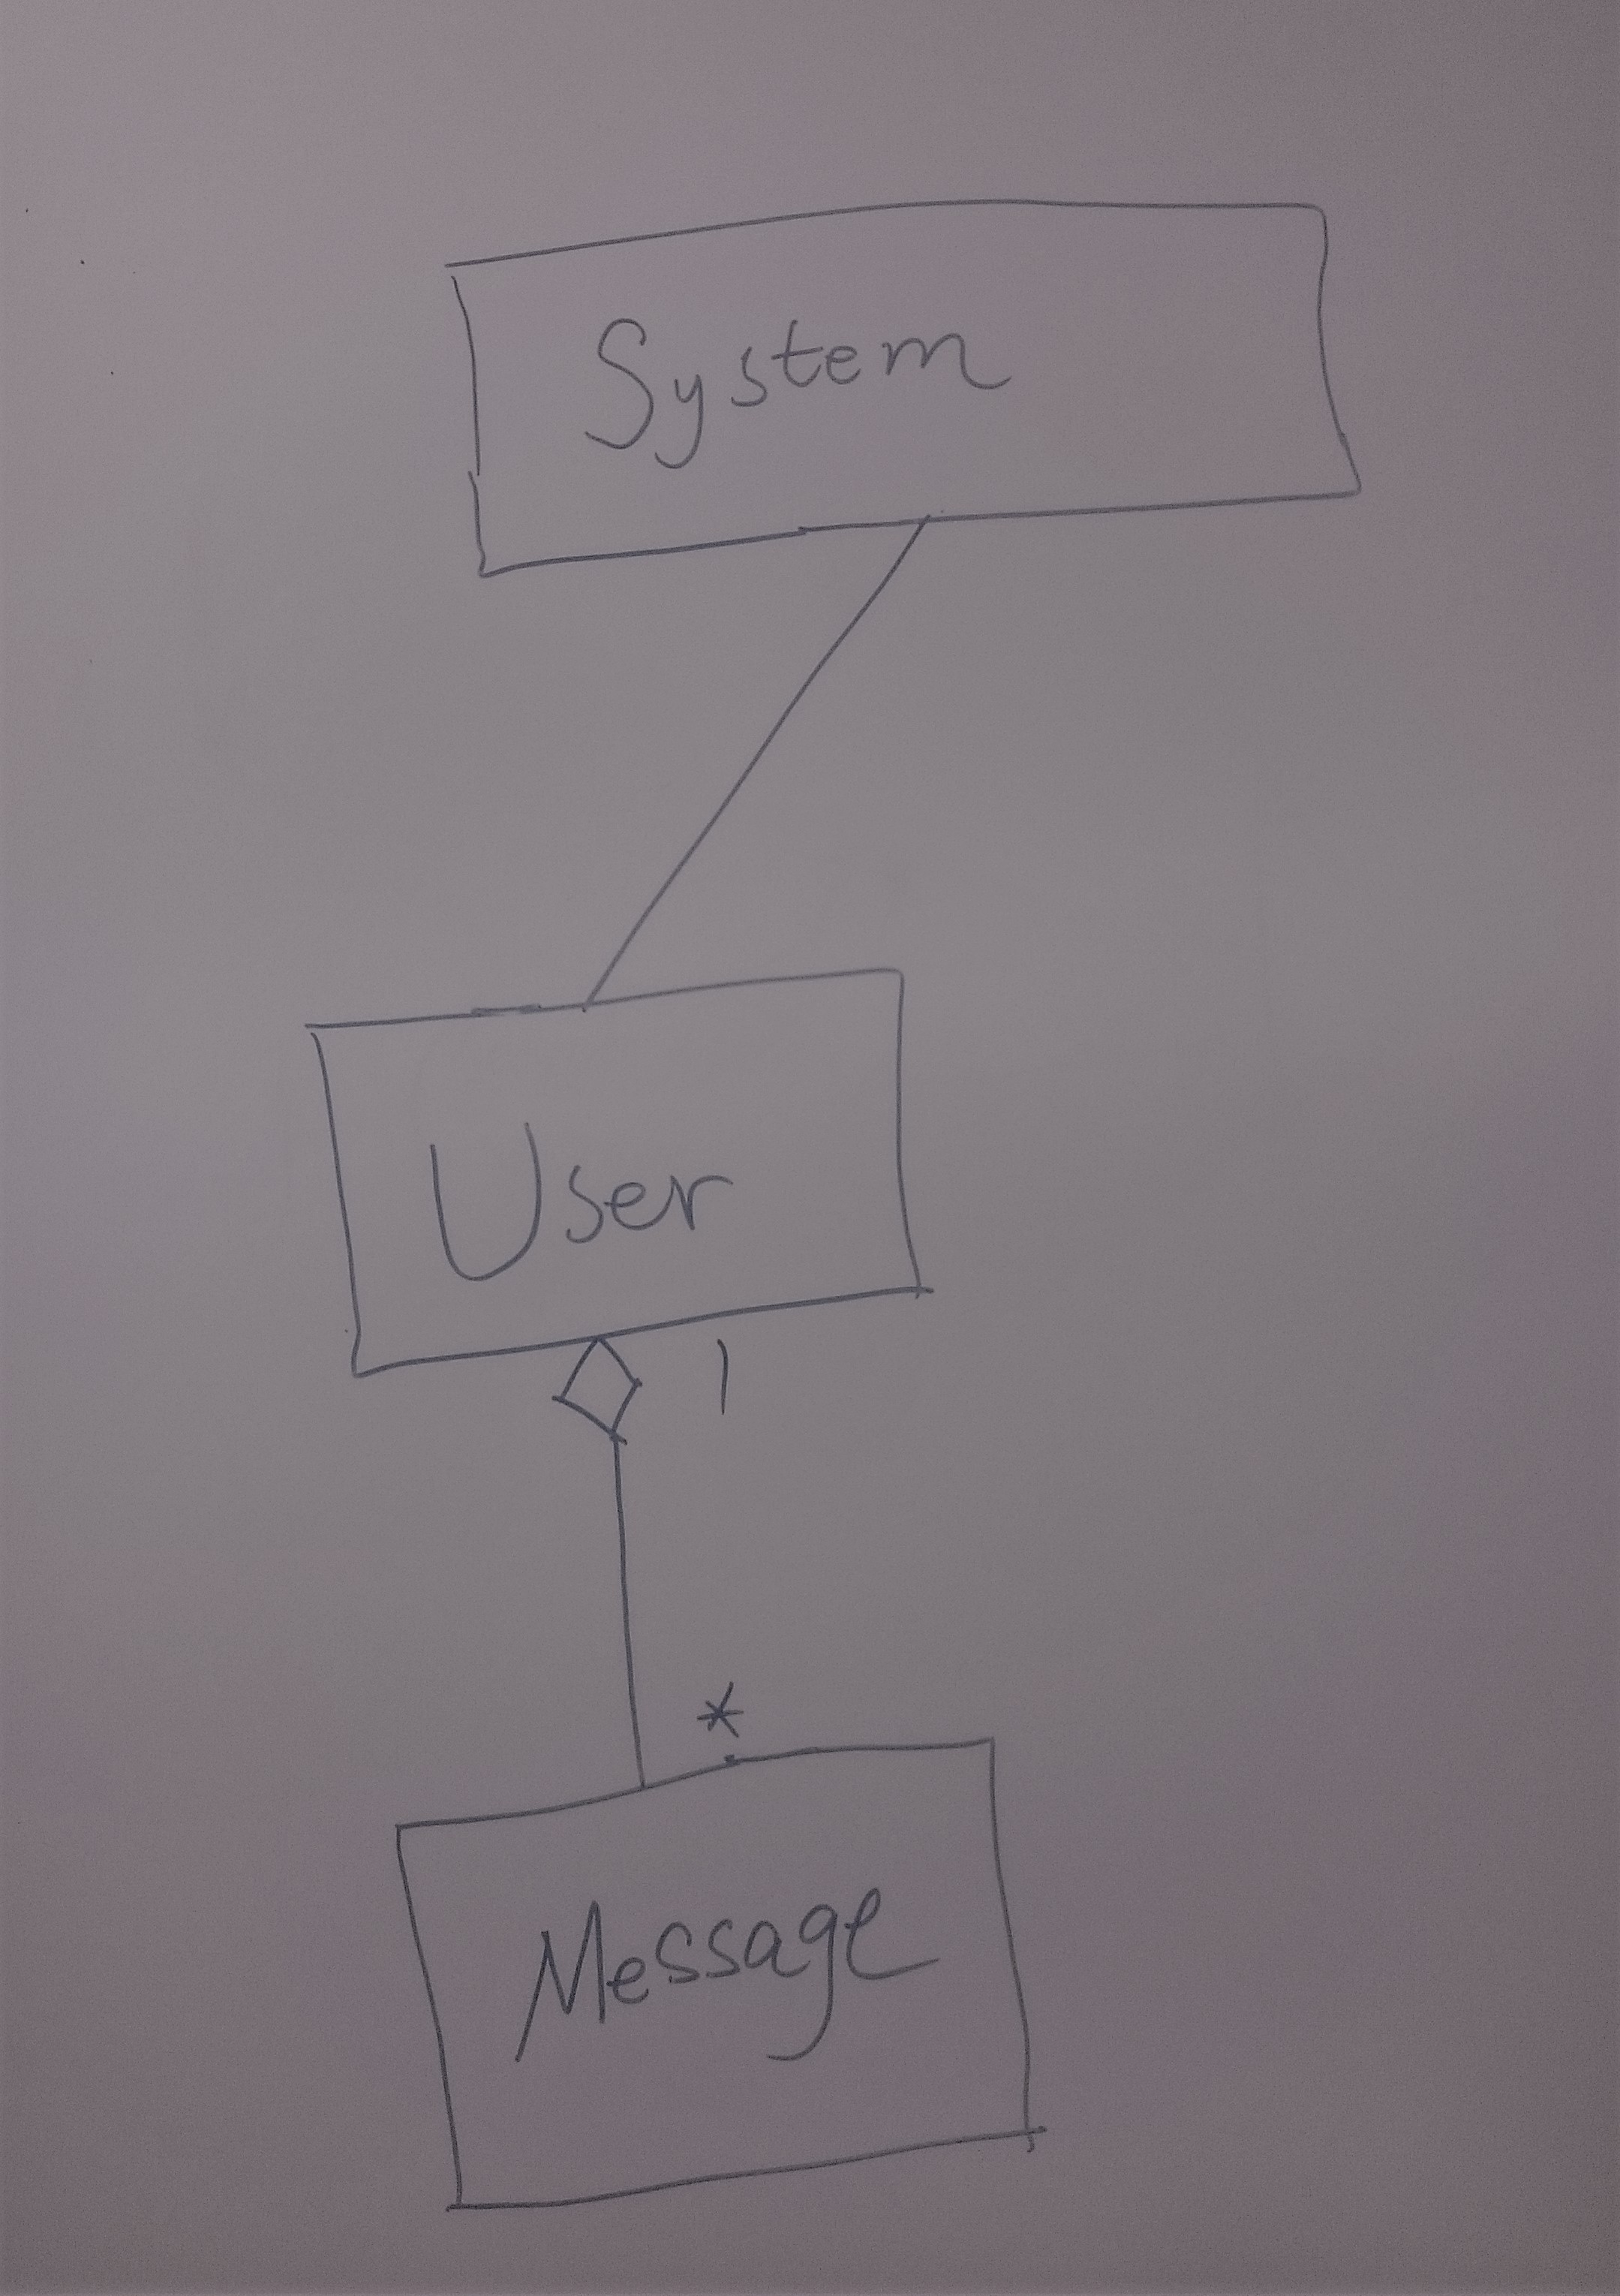 System
User
1
*
Message